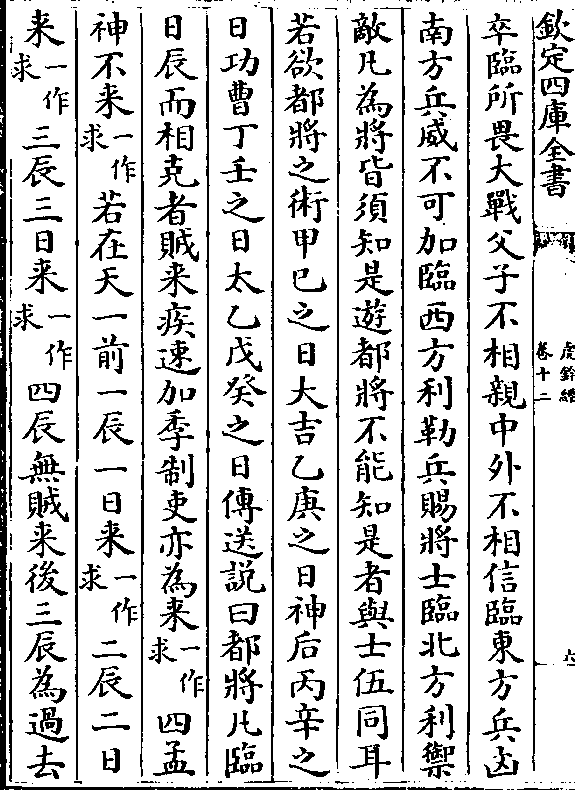 欽定四庫全書
虎鈐經
卷十二
六
卒臨所畏大戰父子不相親中外不相信臨東方兵凶
南方兵威不可加臨西方利勒兵賜將士臨北方利禦
敵凡為將皆須知是遊都將不能知是者與士伍同耳
若欲都將之術甲巳之日大吉乙庚之日神后丙辛之
日功曹丁壬之日太乙戊癸之日傳送説曰都將凡臨
日辰而相克者賊来疾速加季制吏亦為来一作求四孟
神不来一作求若在天一前一辰一日来一作求二辰二日
来一作求三辰三日来一作求四辰無賊来後三辰為過去